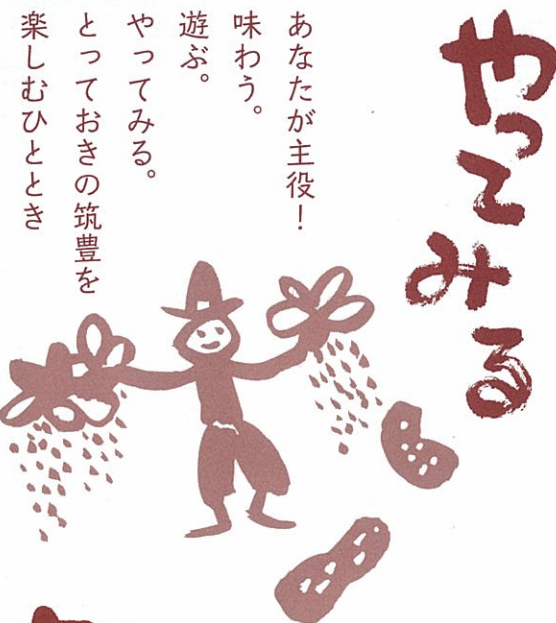 やってみる
あなたが主役！
味わう。
遊ぶ。
やってみる。
とっておきの筑豊を
楽しむひととき